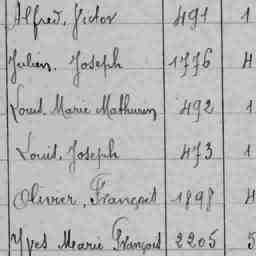 Alfred, Victor 491 1
Julien, Joseph 1776 4
Louis, Marie Mathurin 492 1
Louis, Joseph 473 1
Olivier, François 1898 4
Yves Marie François 2205 5